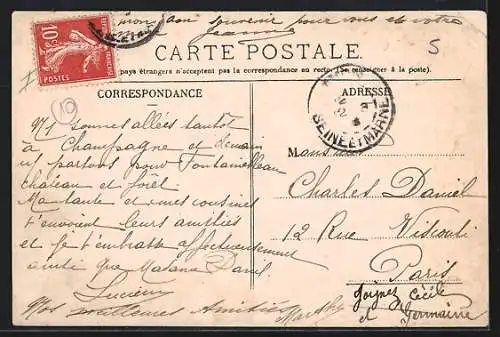 mon bon souvenir pour vous et votre
Jeanne
CARTE POSTALE.
pays étrangers n'acceptent pas la correspondance au recto, (se renseigner à la poste).
10
POSTES
5
10
CORRESPONDANCE
ADRESSE
SEINE-ET-MARNE
Ns sommes allées tantôt
à Champagne et demain
ns partons pour Fontainebleau
château et forêt.
et mes cousines
t'envoient leurs amitiés
et je t'embrasse affectueusement
ainsi que Madame Daniel
Lucien
Nos meilleures Amitiés
Marthe
Charles Daniel
12 Rue Visconti
Paris
Cécile
et Germaine